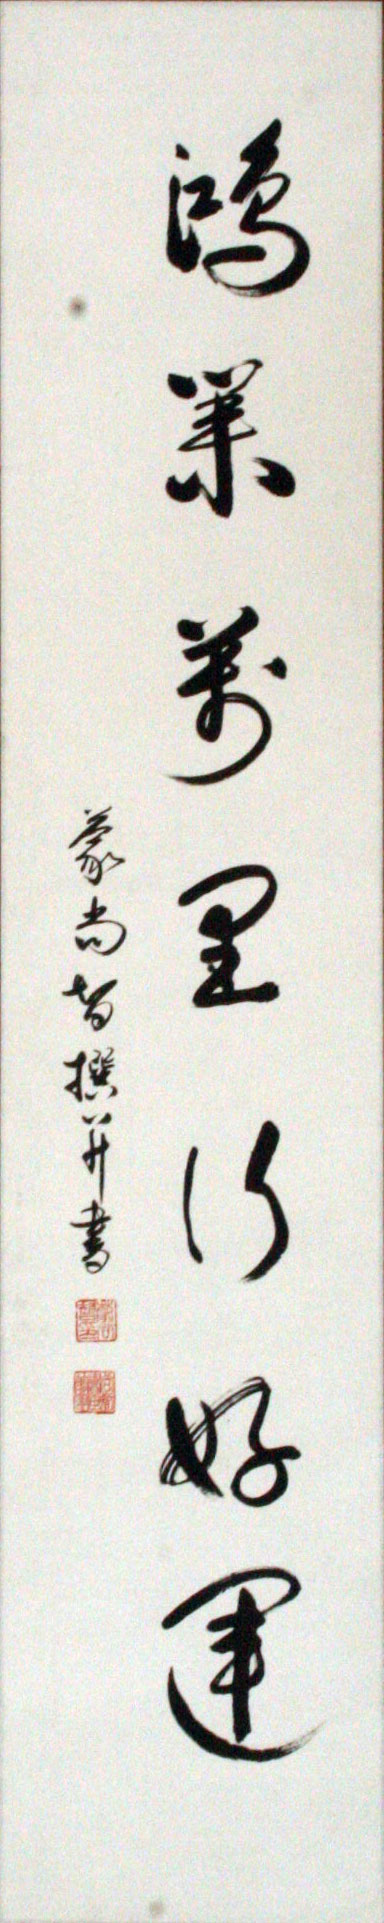 鴻業萬里行好運
蒙尚智撰并書